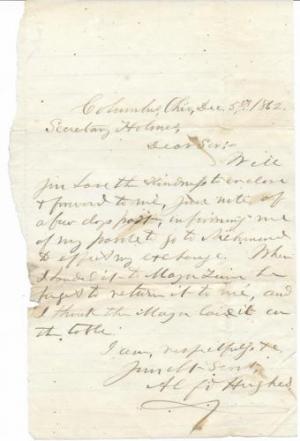 Columbus, Ohio, Dec. 5th, 1862.
Secretary Holmes,
Dear Sir:
Will
you have the kindness to enclose
& forward to me, your note of
a few days past, informing me
of my parole to go to Richmond
& effect my exchange. When
I handed it to Major Zinn he
forgot to return it to me, and
I think the Major laid it on
the table.
I am, respectfully &c
Your obt. Servt.
Al G. Hughes